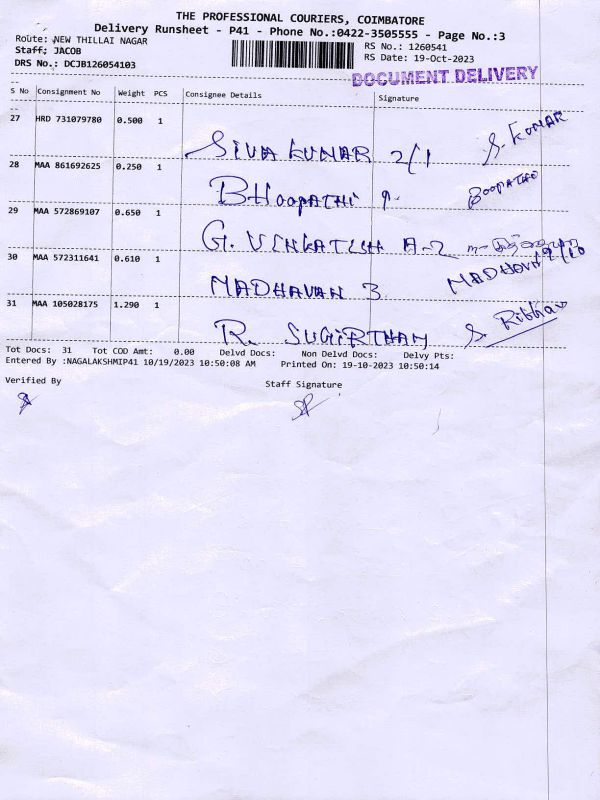 THE PROFESSIONAL COURIERS, COIMBATORE
Delivery Runsheet - P41 - Phone No.:0422-3505555 - Page No.:3
Route: NEW THILLAI NAGAR
RS No.: 1260541
Staff; JACOB
RS Date: 19-Oct-2023
DRS No.: DCJB126054103
DOCUMENT DELIVERY
S No Consignment No Weight PCS Consignee Details Signature
27 HRD 731079780 0.500 1
SIVA KUMAR 2/1 S. KUMAR
28 MAA 861692625 0.250 1
BHOOPATHI
29 MAA 572869107 0.650 1
G. VENKATESH A-2
30 MAA 572311641 0.610 1
MADHAVAN 3
31 MAA 105028175 1.290 1
R. SUGIRTHAM
Tot Docs: 31 Tot COD Amt: 0.00 Delvd Docs: Non Delvd Docs: Delvy Pts:
Entered By :NAGALAKSHMIP41 10/19/2023 10:50:08 AM Printed On: 19-10-2023 10:50:14
Verified By Staff Signature